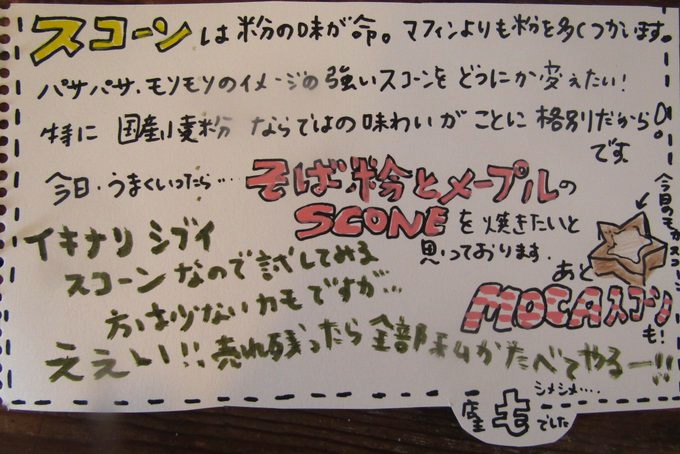 スコーンは粉の味が命。マフィンよりも粉を多くつかいます。
パサパサ、モソモソのイメージの強いスコーンをどうにか変えたい!
特に国産小麦粉ならではの味わいがことに格別だから
です。
今日、うまくいったら…そば粉とメープルの
SCONEを焼きたいと
思っております。
イキナリシブイ
スコーンなので試してみる
方は少ないカモですが…
今日のモカスコーン
あと
MOCAスコーン
も!
ええい!!売れ残ったら全部私がたべてやるー!!
シメシメ…
店主でした